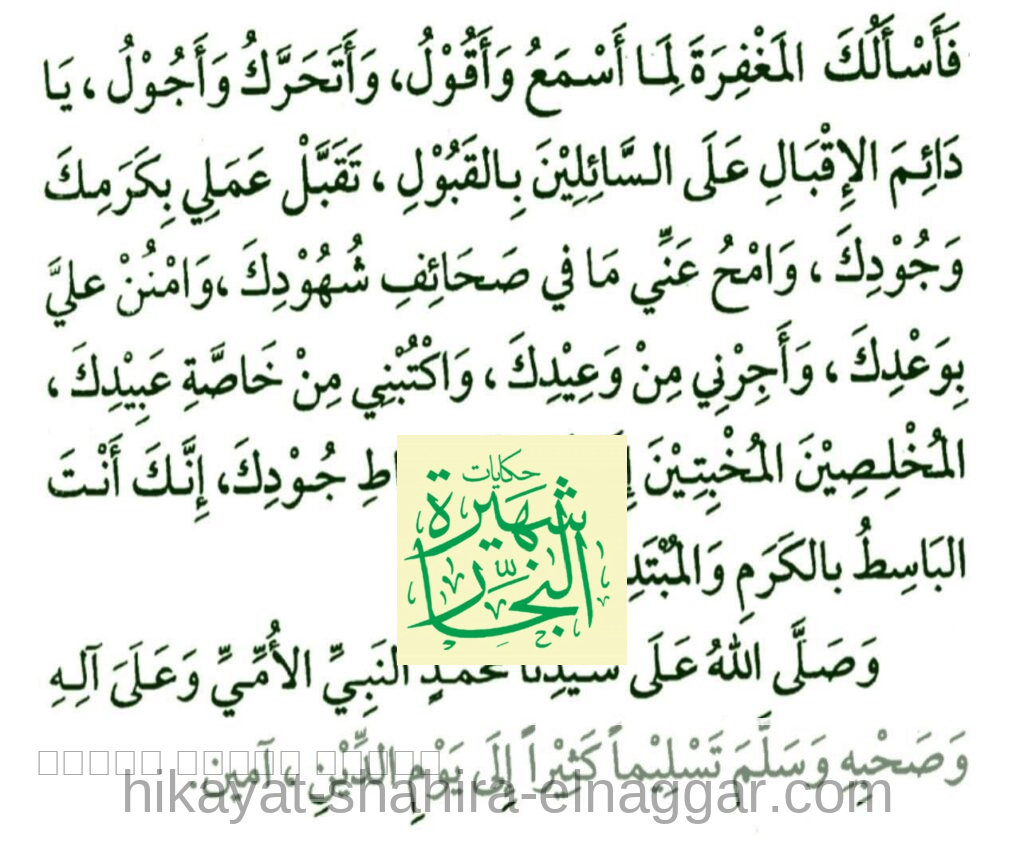 فَأَسْأَلُكَ المَغْفِرَةَ لِمَا أَسْمَعُ وَأَقُوْلُ، وَأَتَحَرَّكُ وَأَجُوْلُ ، يَا
دَائِمَ الإِقْبَالِ عَلَى السَّائِلِيْنَ بِالقَبُوْلِ ، تَقَبَّلْ عَمَلِي بِكَرَمِكَ
وَجُوْدِكَ ، وَامْحُ عَنِّي مَا في صَحَائِفِ شُهُوْدِكَ ،وَامْنُنْ عليَّ
بِوَعْدِكَ ، وَأَجِرْنِي مِنْ وَعِيْدِكَ ، وَاكْتُبْنِي مِنْ خَاصَّةِ عَبِيْدِكَ ،
المُخْلِصِيْنَ المُخْبِتِيْنَ جُوْدِكَ، إِنَّكَ أَنْتَ
البَاسِطُ بالكَرَمِ
وَصَلَّى اللهُ عَلَى سَيِّدِنَا مُحَمَّدٍ النَبِيِّ الأُمِّيِّ وَعَلَىَ آلِهِ
وَصَحْبِهِ وَسَلَّمَ تَسْلِيْماً كَثِيْراً إِلَى يَوْمِ الدِّيْنِ ، آمين.
حكايات
شهيرة
النجار
hikayat-shahira-elnaggar.com